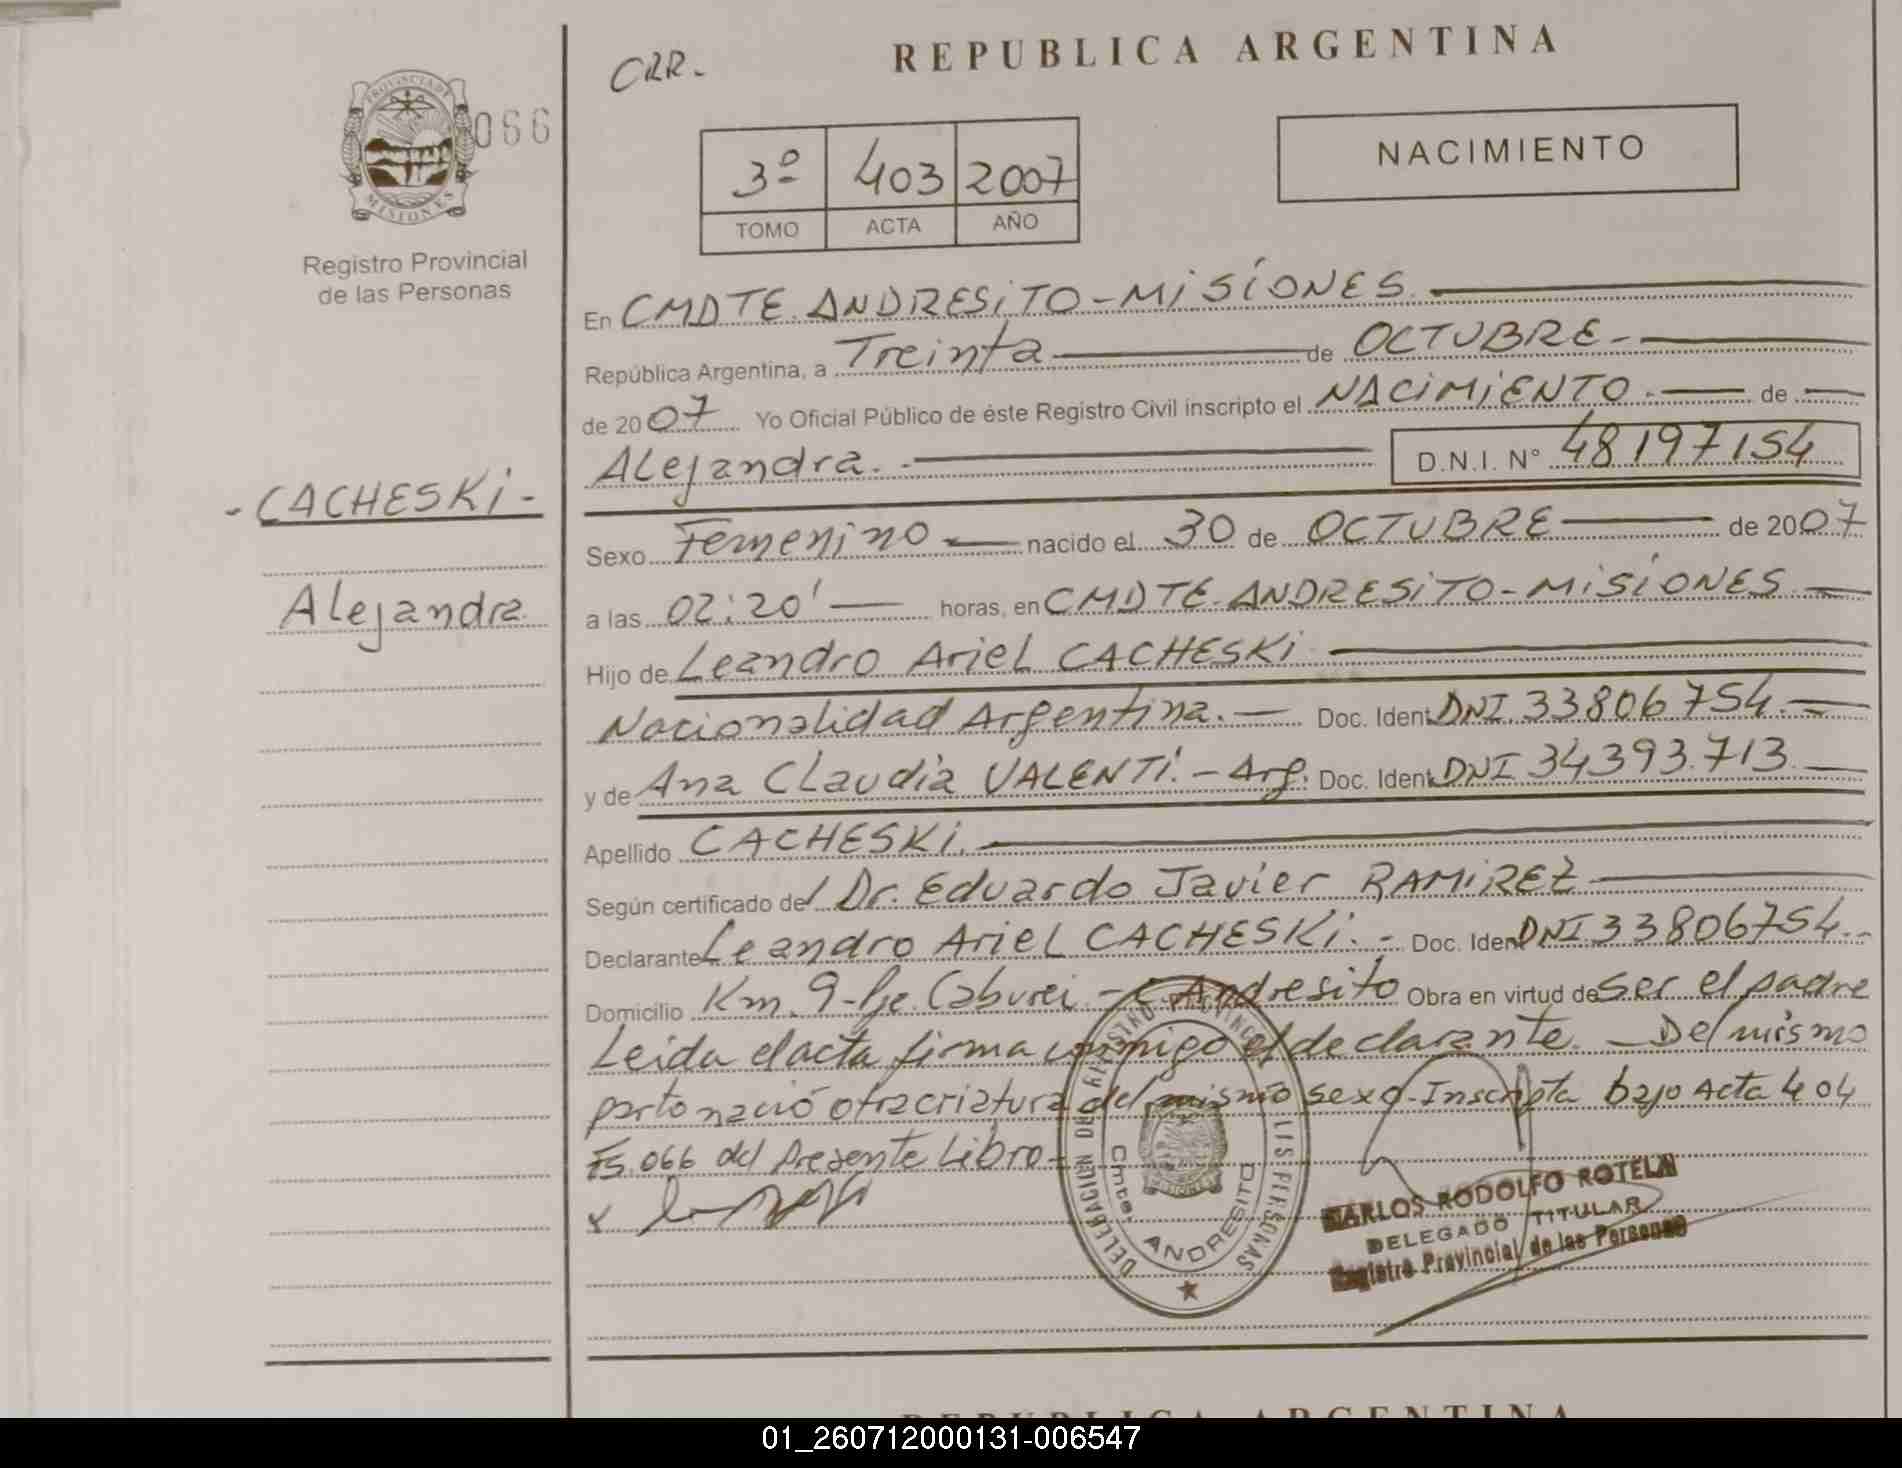 CRR-
REPUBLICA ARGENTINA
PROVINCIA DE
MISIONES
066
Registro Provincial
de las Personas
3º 403 2007
TOMO ACTA AÑO
NACIMIENTO
En CMDTE. ANDRESITO-MISIONES.
República Argentina, a Treinta de OCTUBRE-
de 2007 Yo Oficial Público de éste Registro Civil inscripto el NACIMIENTO.- de
Alejandra.- D.N.I. Nº 48197154
-CACHESKI-
Alejandra
Sexo Femenino nacido el 30 de OCTUBRE de 2007
a las 02:20' horas, en CMDTE. ANDRESITO-MISIONES
Hijo de Leandro Ariel CACHESKI
Nacionalidad Argentina.- Doc. Ident DNI 33806754.-
y de Ana Claudia VALENTI.-Arg. Doc. Ident DNI 34393.713.
Apellido CACHESKI.
Según certificado del Dr. Eduardo Javier RAMIREZ
Declarante Leandro Ariel CACHESKI.- Doc. Ident DNI 33806754.-
Domicilio Km. 9-Pje. Caburei.-C. Andresito Obra en virtud de ser el padre
Leida el acta firma conmigo el declarante.-Del mismo
parto nació otra criatura del mismo sexo-Inscripta bajo Acta 404
Fs. 066 del Presente Libro-
Cmte. ANDRESITO
CARLOS RODOLFO ROTELA
DELEGADO TITULAR
Registro Provincial de las Personas
REPUBLICA ARGENTINA
01_260712000131-006547